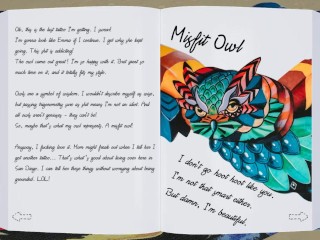 Ok, this is the last tattoo I'm getting, I swear!
I'm gonna look like Emma if I continue. I get why she kept
going. This shit is addicting!
The owl came out great! I'm so happy with it. Sean spent so
much time on it, and it totally fits my style.
Owls are a symbol of wisdom. I wouldn't describe myself as wise,
but saying trigonometry can as shit means I'm not an idiot. And
all owls aren't geniuses - they can't be!
So, maybe that's what my owl represents. A misfit owl!
Anyway, I fucking love it. Mom might freak out when I tell her I
got another tattoo... That's what's good about living over here in
San Diego. I can tell her these things without worrying about being
grounded. LOL!
Misfit Owl
I don't go hoot hoot like you,
I'm not that smart either,
But damn, I'm beautiful.